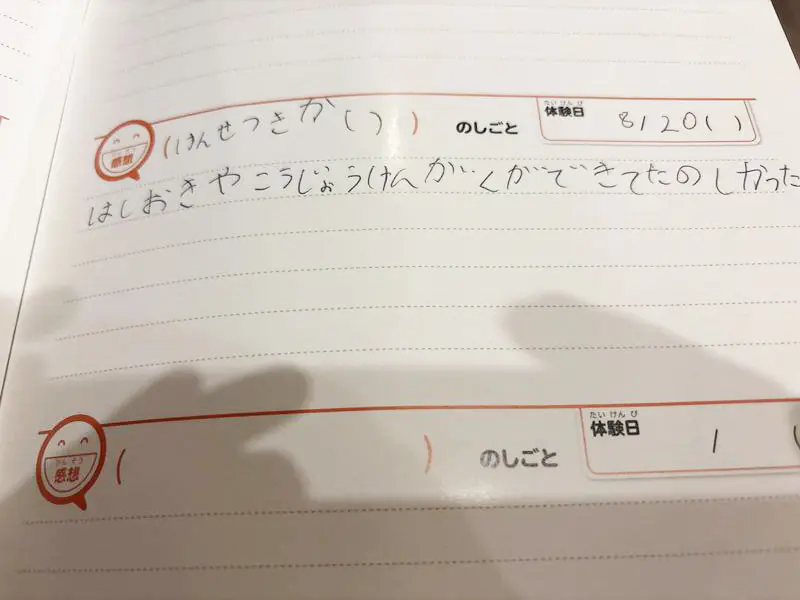 かんそう
感想
(けんせつきか()) のしごと
たいけんび
体験日
8/20()
はしおきやこうじょうけんがくができてたのしかった
かんそう
感想
( ) のしごと
たいけんび
体験日
/ (